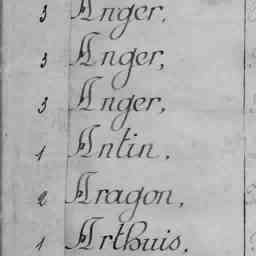 3 Anger,
3 Anger,
3 Anger,
1 Antin,
2 Aragon,
1 Arthuis,